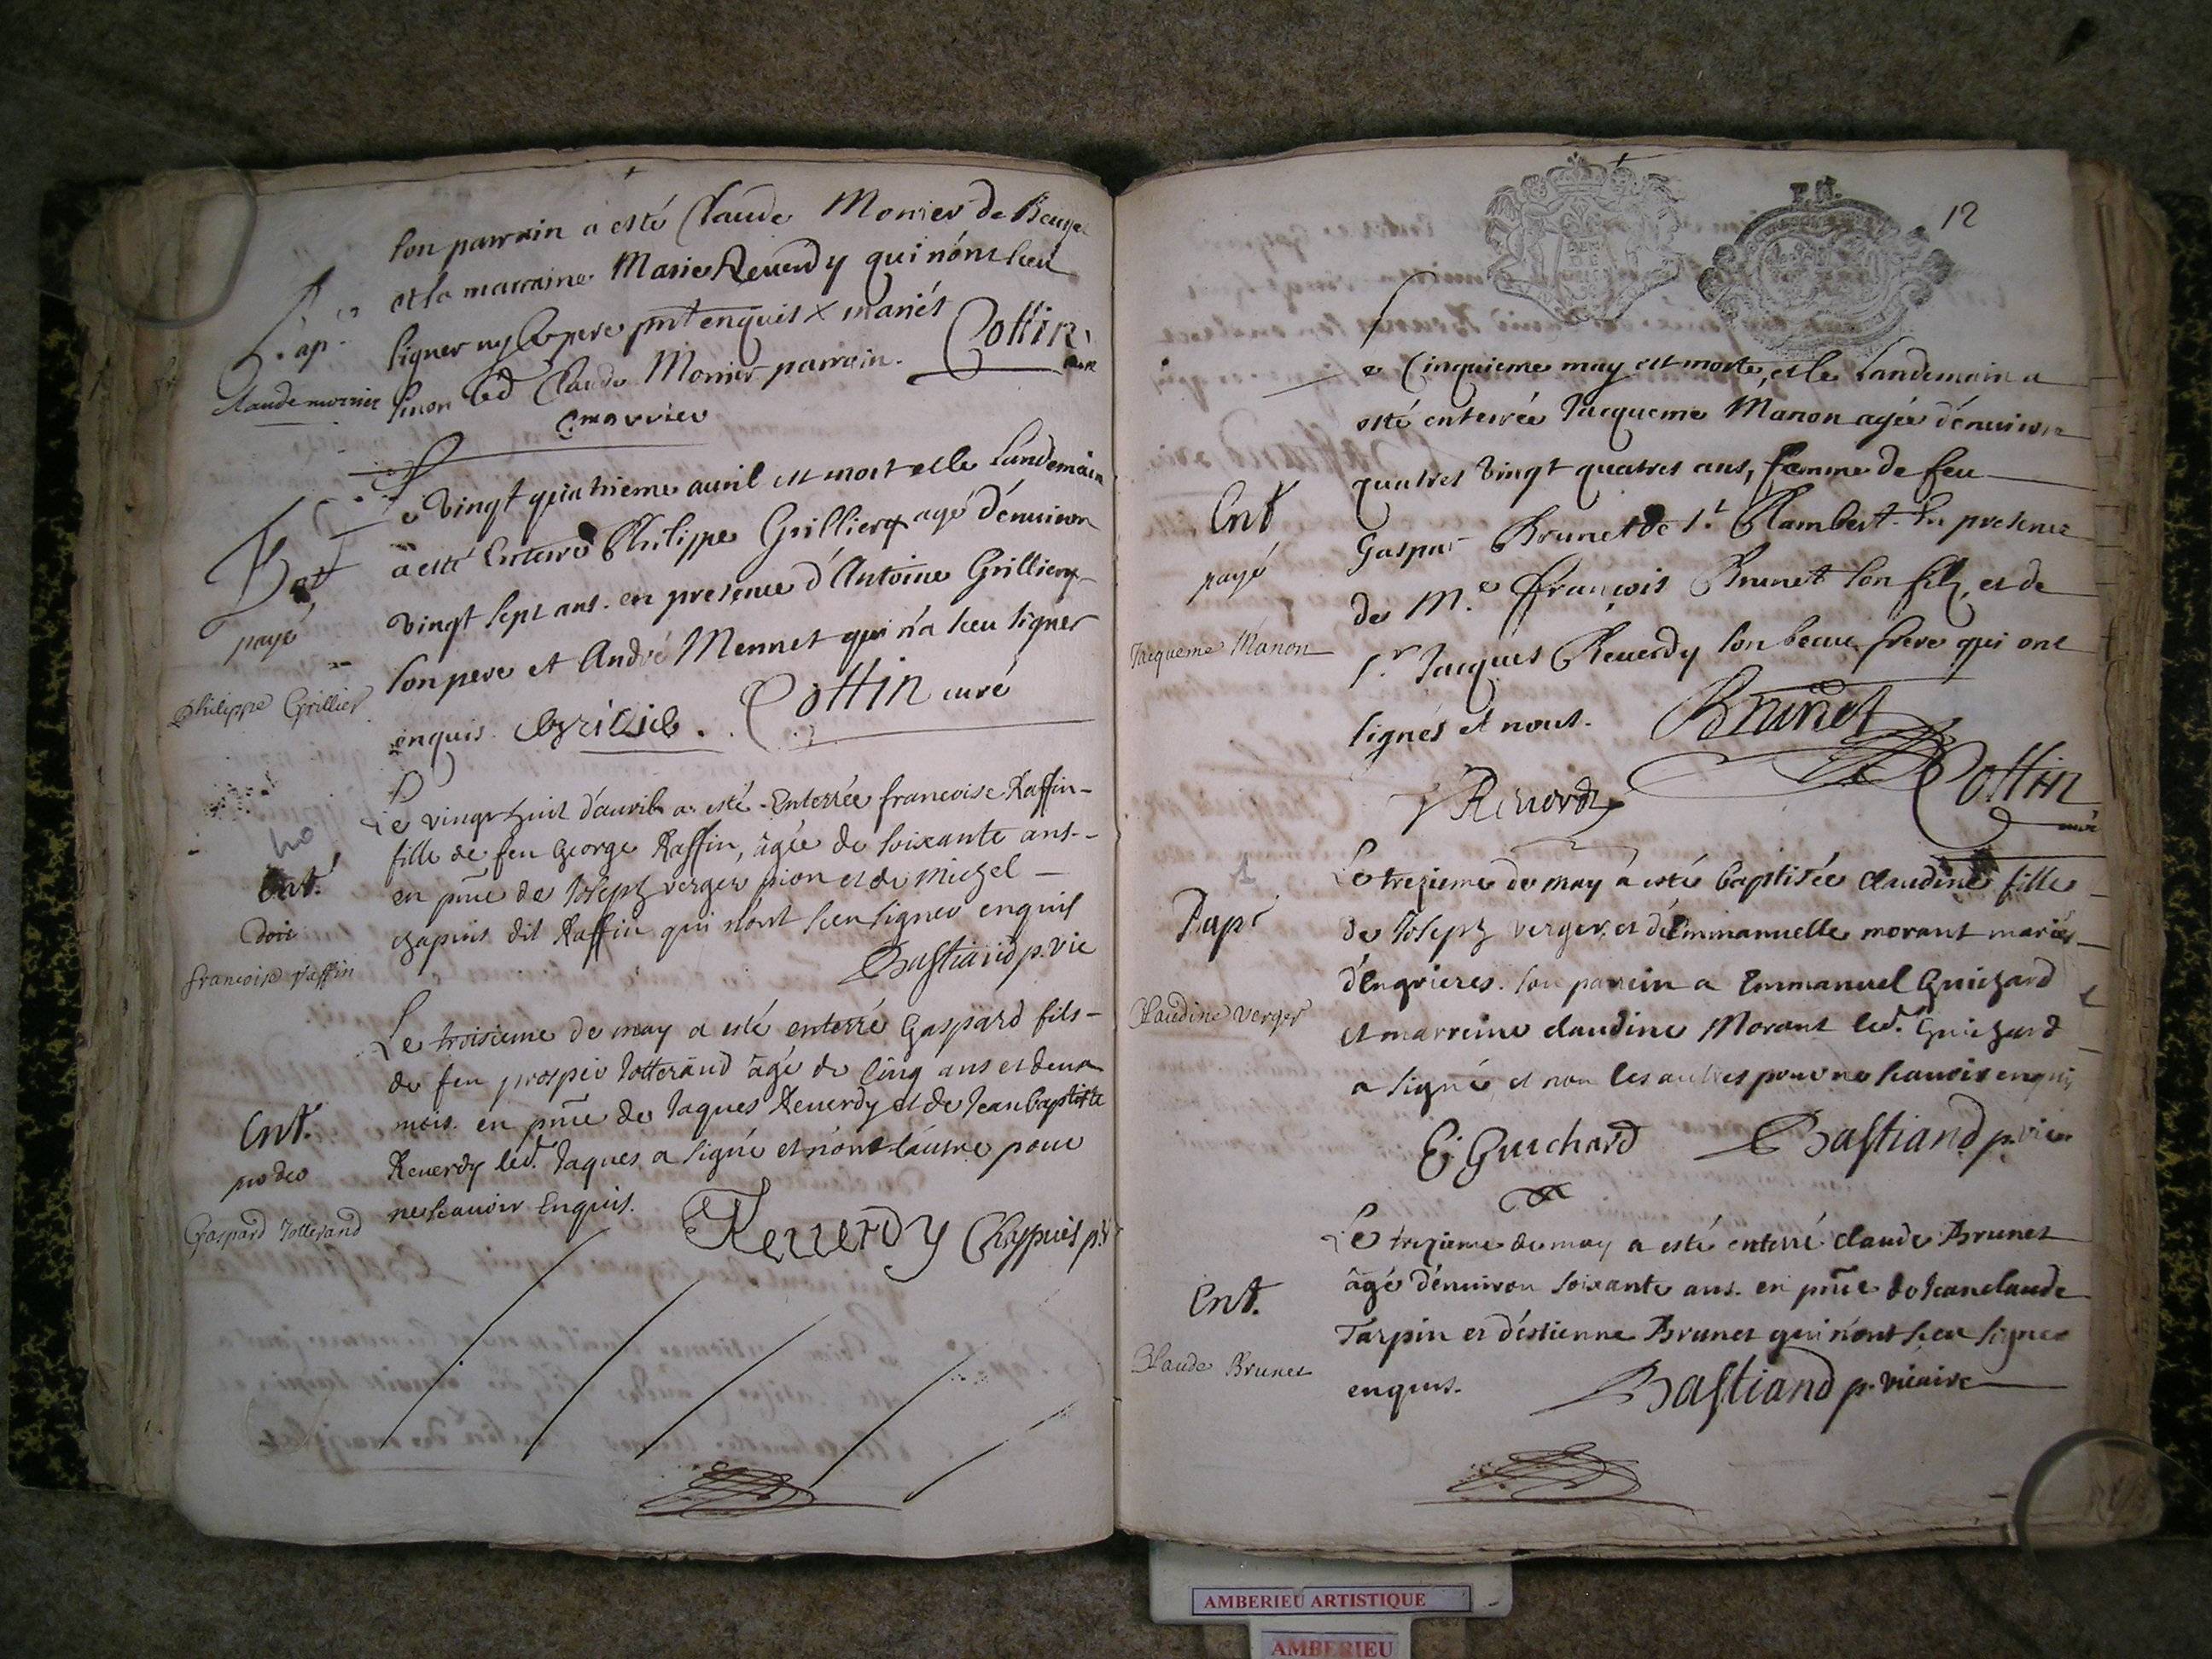 son parrain a esté Claude Monier de
et la marraine Marie Reuerdy qui n'ont sceu
Bap.
signer ny le pere pnt enquis x mariés
sinon led Claude Monier parrain. Cottin
Claude monier
cmonnier
Le vingt quatrieme auril est mort et le landemain
a esté enterré Philippe Grillierx agé d'enuiron
vingt sept ans. en presence d'Antoine Grillierx
payé
son pere et André Mennet qui n'a sceu signer
Philippe Grillier
enquis. Cottin curé
Le vingt huit d'auril a esté Enterrée francoise Raffin
fille de feu George Raffin, âgée de soixante ans
Ent.
en pnce de Joseph verger pion et de michel
doit
chapuis dit Raffin qui n'ont sceu signer enquis
francoise raffin
Bastiand p. vic
Le troisieme de may a esté enterré Gaspard fils
de feu prosper Jotterand âgé de cinq ans et deux
mois. en pnce de Jaques Reuerdy et de Jean baptiste
Ent.
Reuerdy led. Jaques a signé et non l'autre pour
pro deo
ne scauoir Enquis.
Gaspard Jotterand
Reuerdy Chappuis
12
Le Cinquieme may est morte, et le Landemain a
esté enterrée Jacqueme Manon agée d'enuiron
quatres vingt quatres ans, femme de feu
Ent
Gaspar Brunet de St Rambert. En presence
payé
de M.e François Brunet son filz, et de
Jacqueme Manon
Sr. Jacques Reuerdy son beau frere qui ont
signés et nous. Brunet
J Reuerdy Cottin
curé
Le trezieme de may a esté baptisée claudine fille
Bap
de Joseph verger, et d'Emmanuelle morant mariés
d'Engrieres. son parrein a Emmanuel Guichard
Claudine verger
et marreine claudine Morant led. Guichard
a signé et non les autres pour ne scauoir enquis
E. Guichard Bastiand p. vic
Le trezieme de may a esté enterré claude Brunet
âgé d'enuiron soixante ans. en pnce de Jean claude
Ent.
Tarpin et d'estienne Brunet qui n'ont sceu signer
Claude Brunet
enquis. Bastiand p. vicaire
AMBERIEU ARTISTIQUE
AMBERIEU